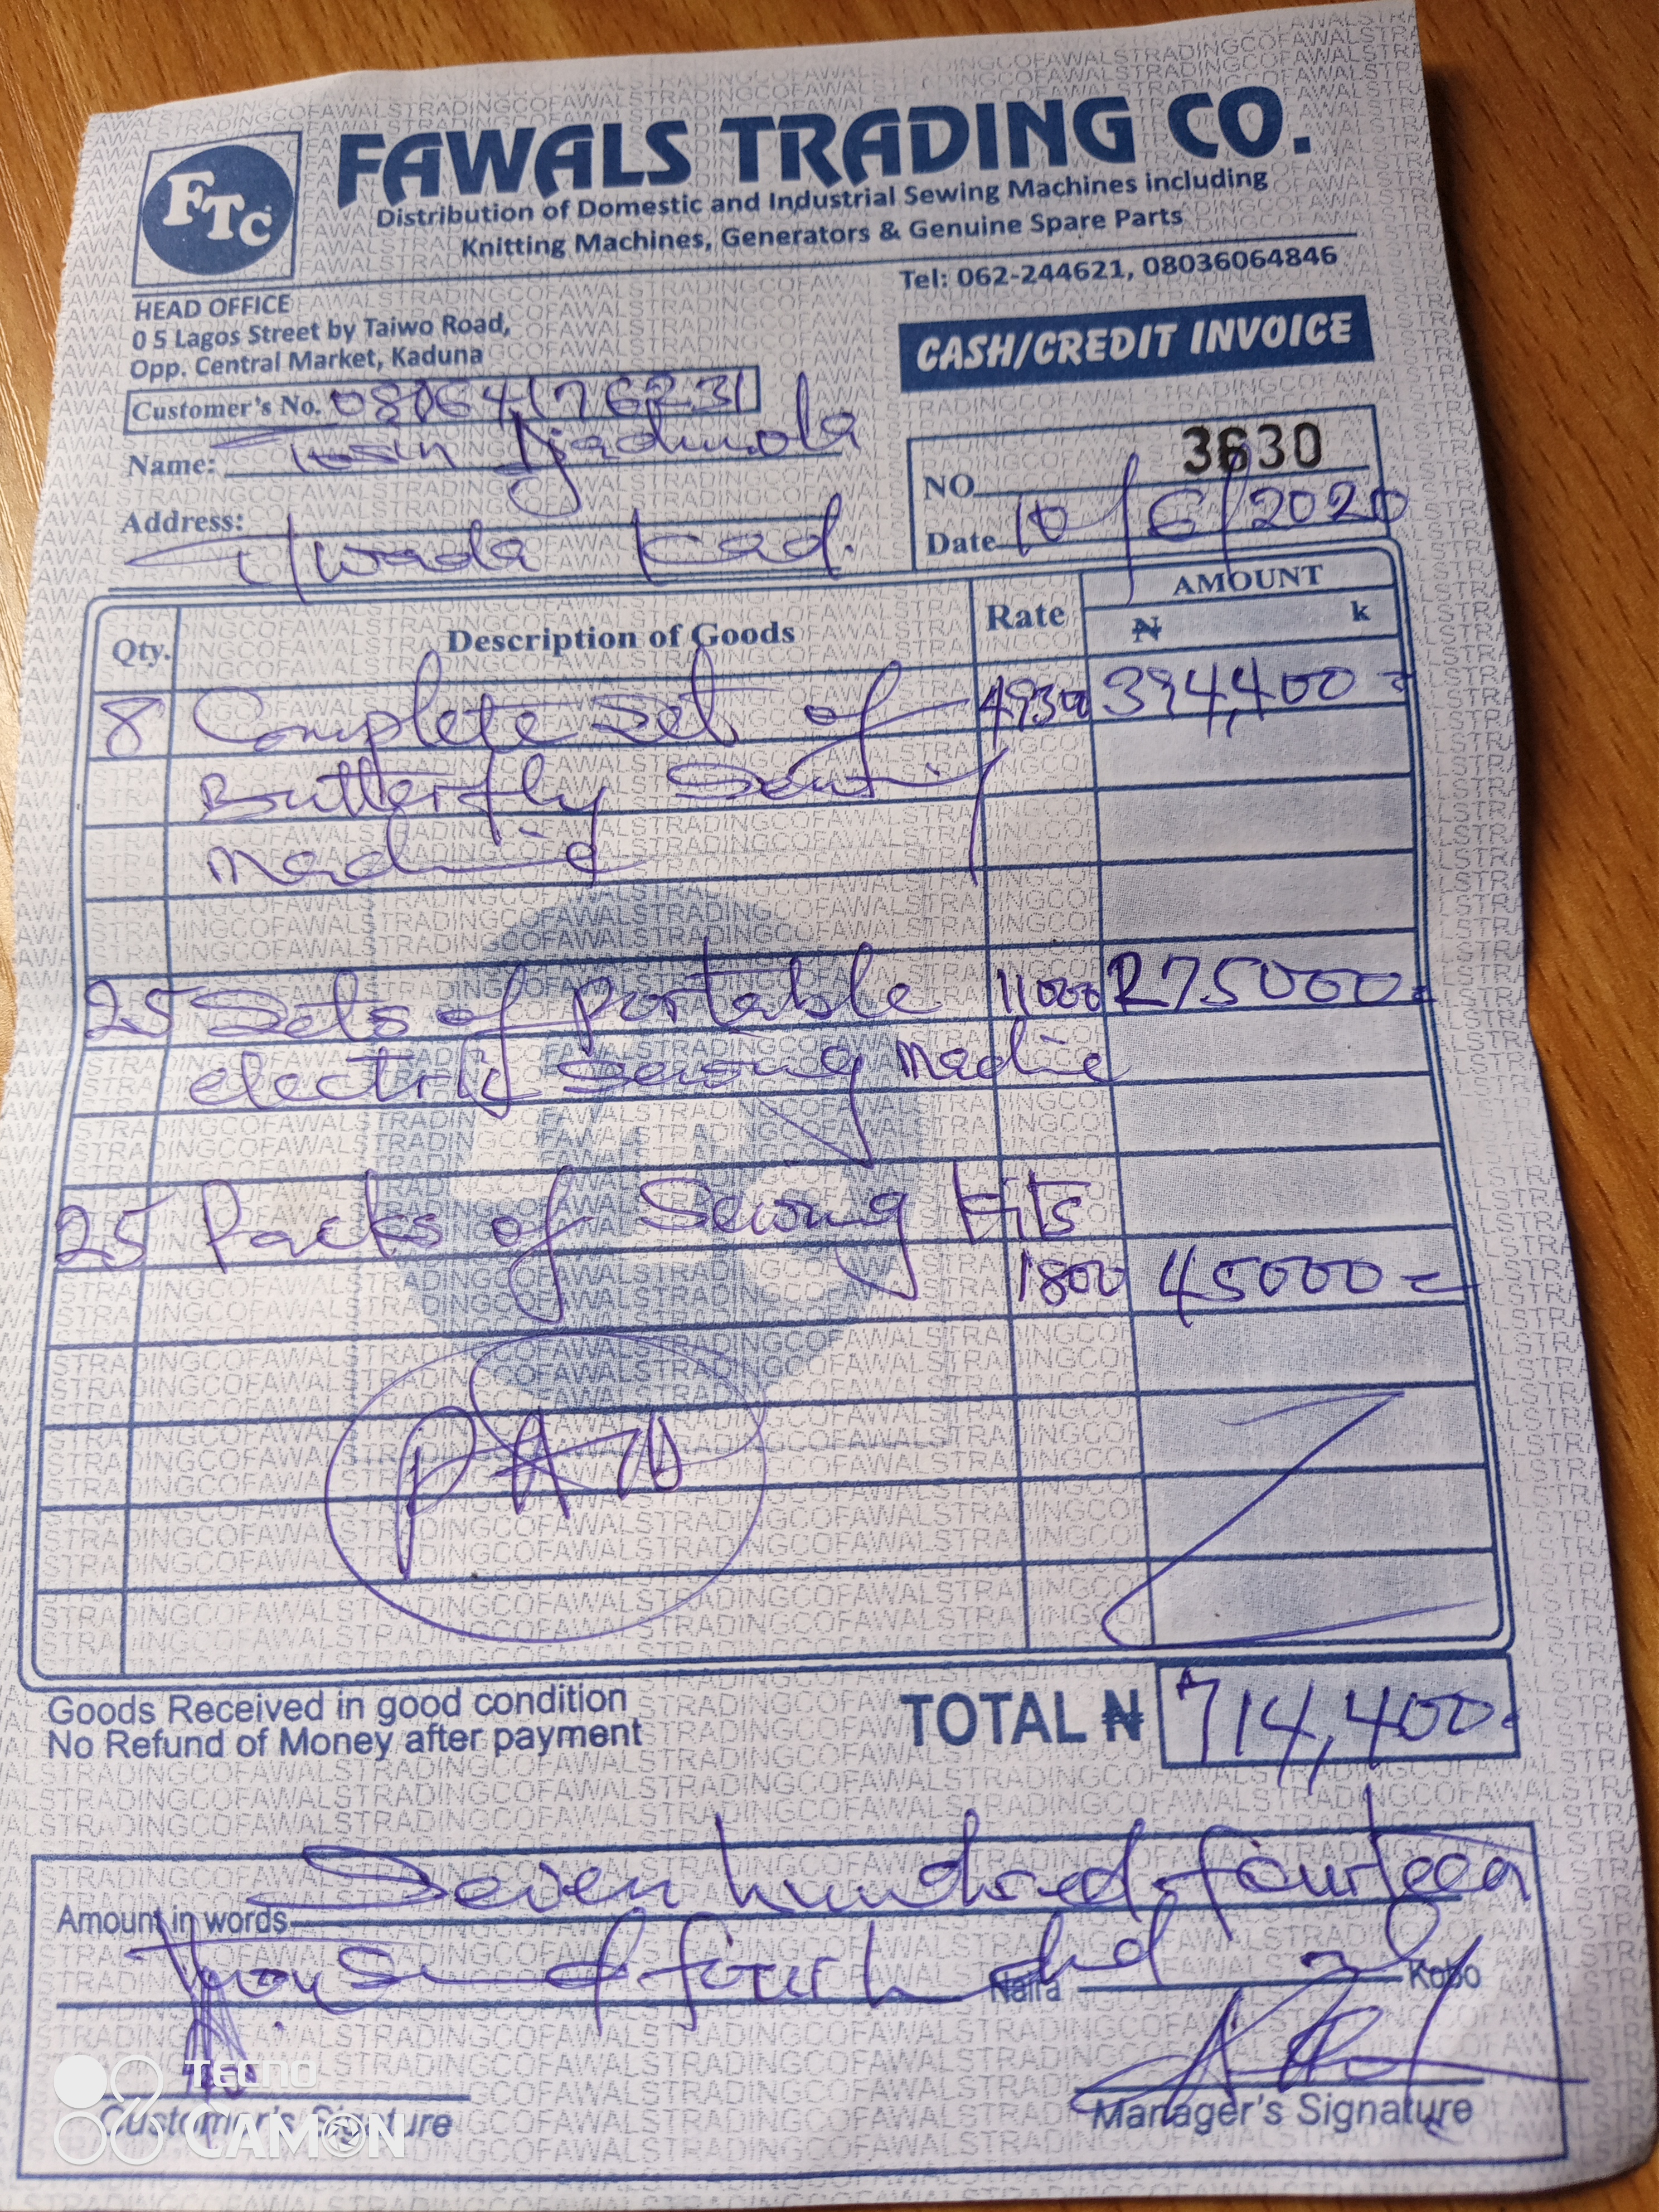 FTC
FAWALS TRADING CO.
Distribution of Domestic and Industrial Sewing Machines including
Knitting Machines, Generators & Genuine Spare Parts
Tel: 062-244621, 08036064846
HEAD OFFICE
0 5 Lagos Street by Taiwo Road,
Opp. Central Market, Kaduna
CASH/CREDIT INVOICE
Customer's No. 08064176231
Name: Tosin
NO 3630
Address: U/wada Kad.
Date 10/6/2020
Qty. Description of Goods Rate AMOUNT
₦ k
8 Complete Set of 49300 394,400=
Butterfly
Machine
25 Sets of portable 11000 275000=
electric Sewing Machine
25 Packs of Sewing Kits
1800 45000=
PAID
Goods Received in good condition
No Refund of Money after payment
TOTAL ₦ 714,400=
Amount in words Seven hundred & fourteen
Naira only Kobo
Customer's Signature
Manager's Signature
TECNO
CAMON